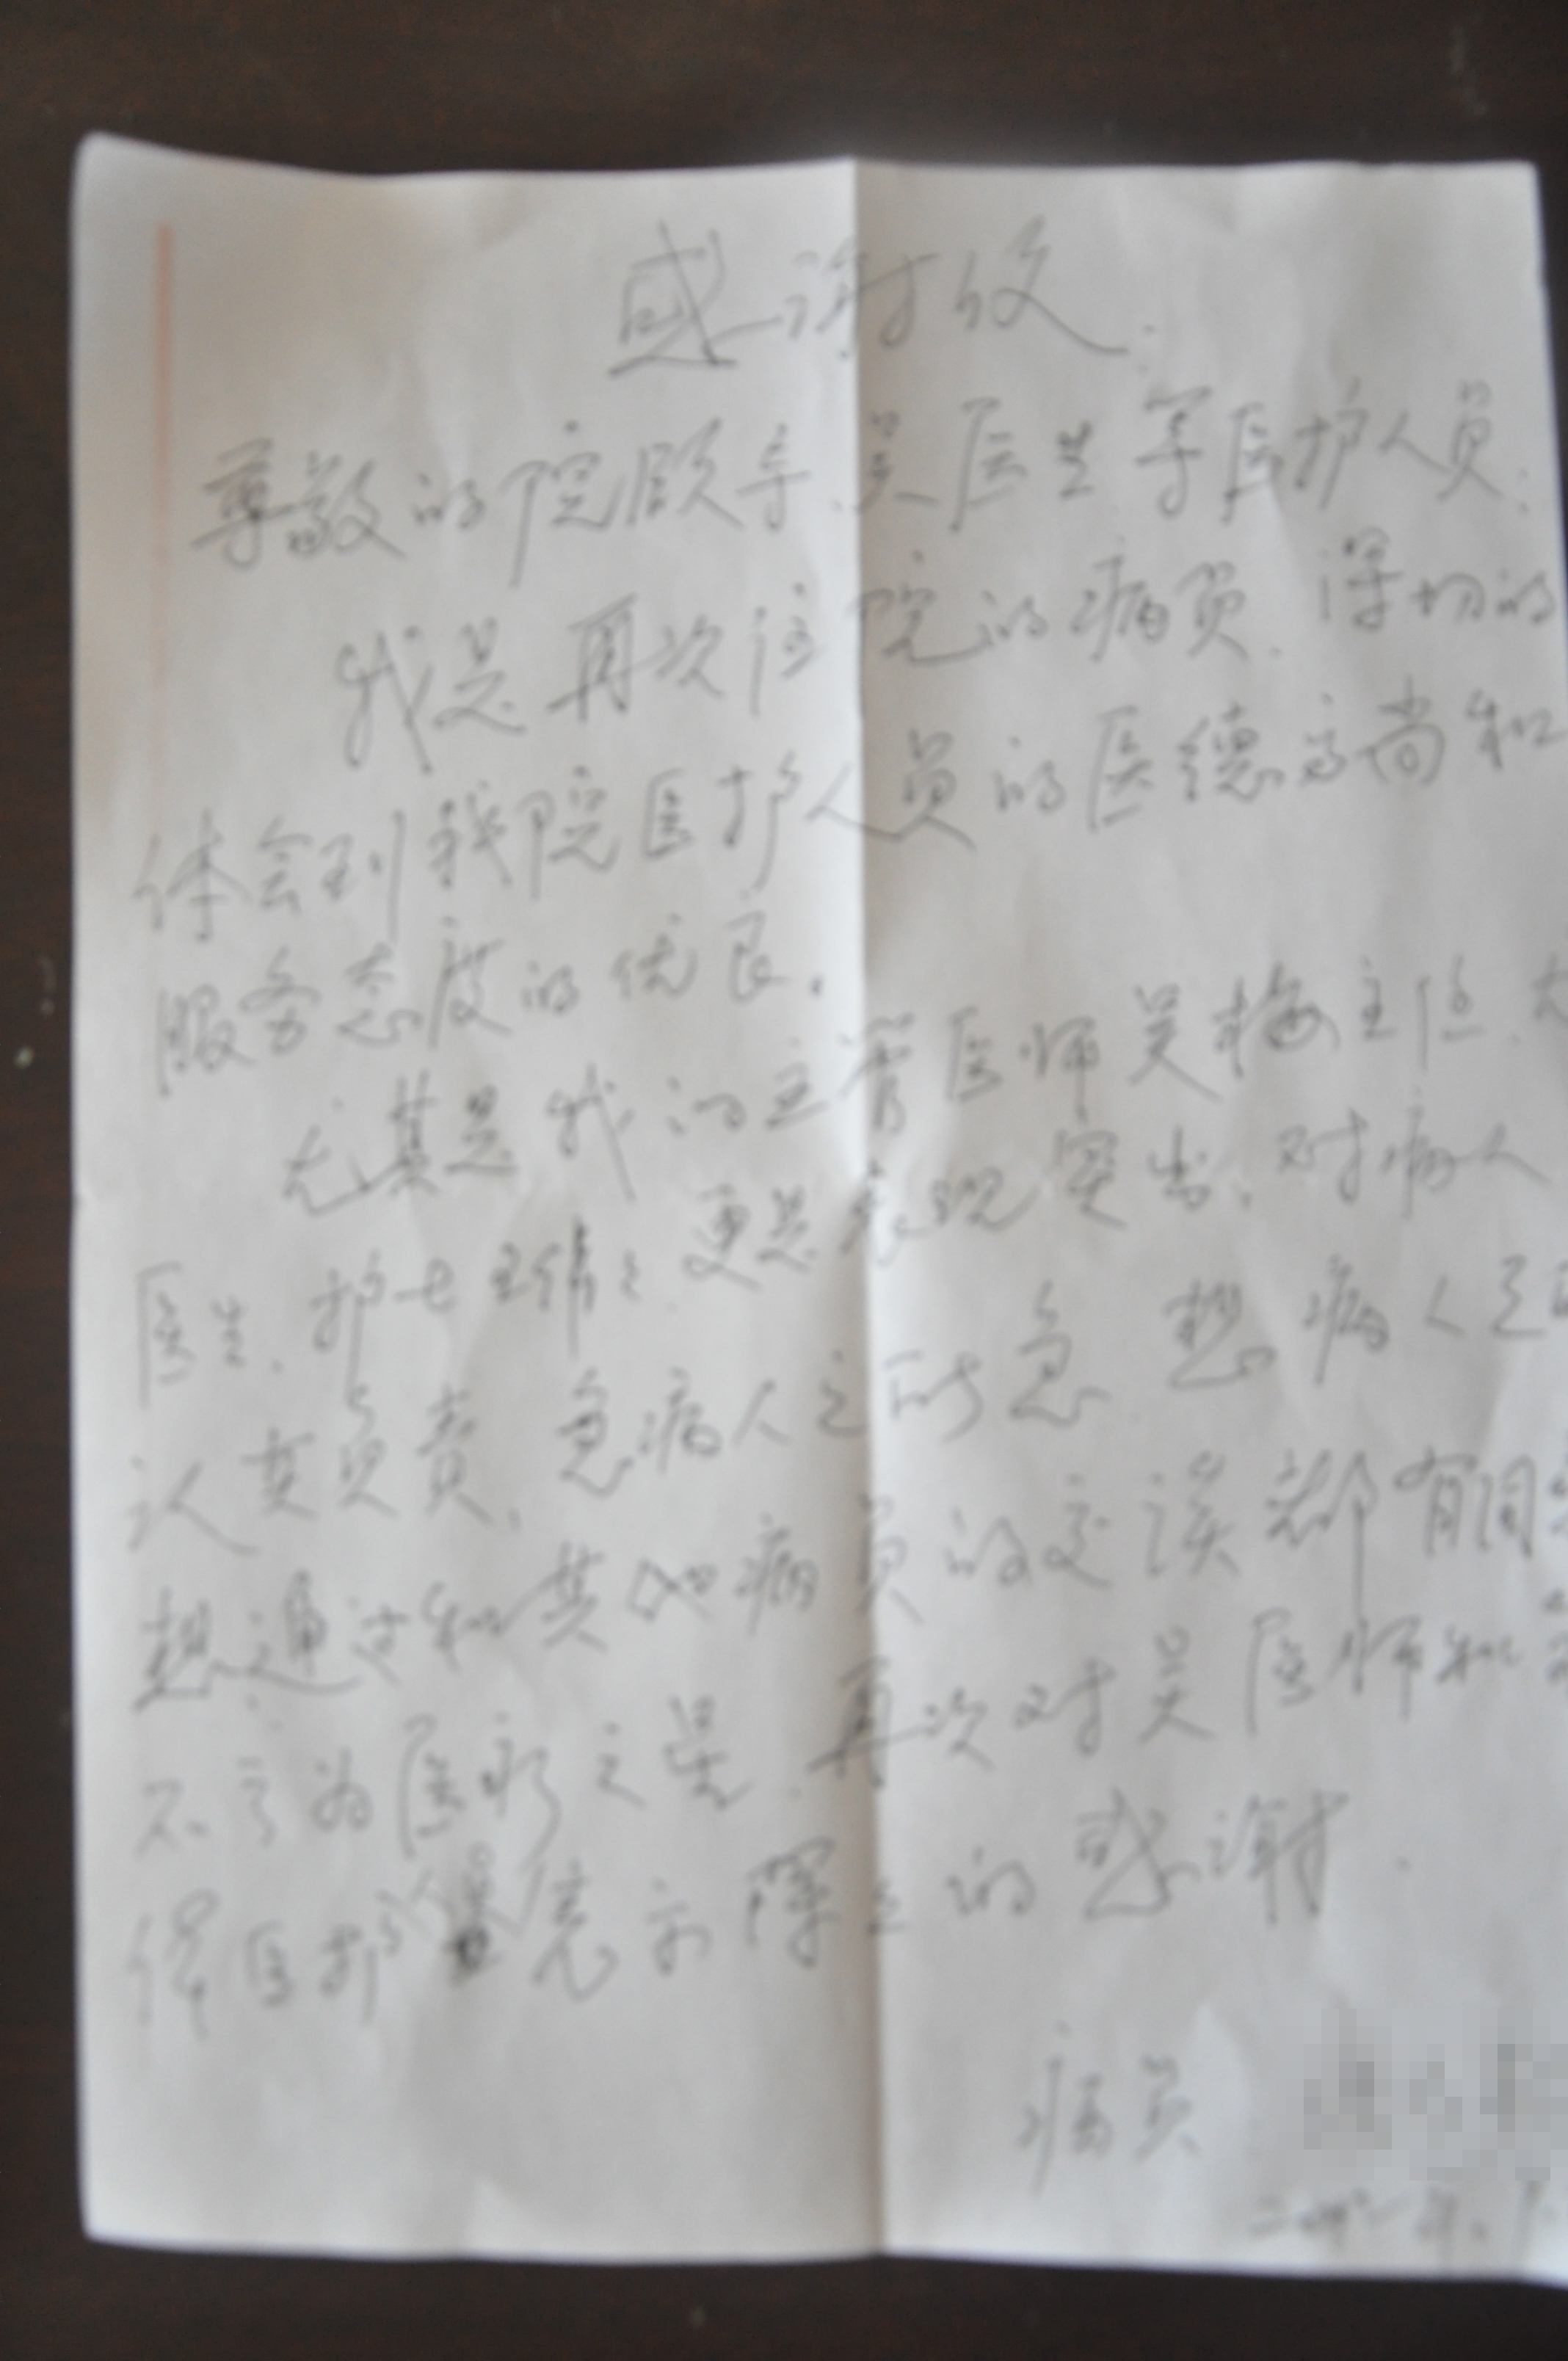 感谢信
尊敬的院领导、吴医生等医护人员:
我是再次住院的病员.深切的
体会到我院医护人员的医德高尚和
服务态度的优良.
尤其是我的主管医师吴梅主任.
医生.护士 更是表现突出.对病人
认真负责.急病人之所急 想病人之
想.通过和其他病员的交谈都有同
不亏为医家之 .再次对吴医师和
体医护 表示 的感谢.
病员